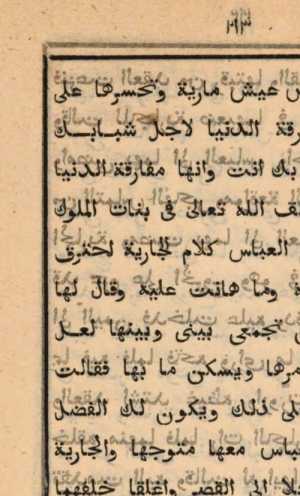 عيش مارية وتحسرها على
رقة الدنيا لاجل شبابك
بك انت وانها مفارقة الدنيا
الله تعالى فى بنات الملوك
العباس كلام الجارية احترق
وما هانت عليه وقال لها
تجمعى بينى وبينها لعل
مرها ويسكن ما بها فقالت
لى ذلك ويكون لك الفضل
باس معها متوجها والجارية
الى القصر واغلقا خلفهما